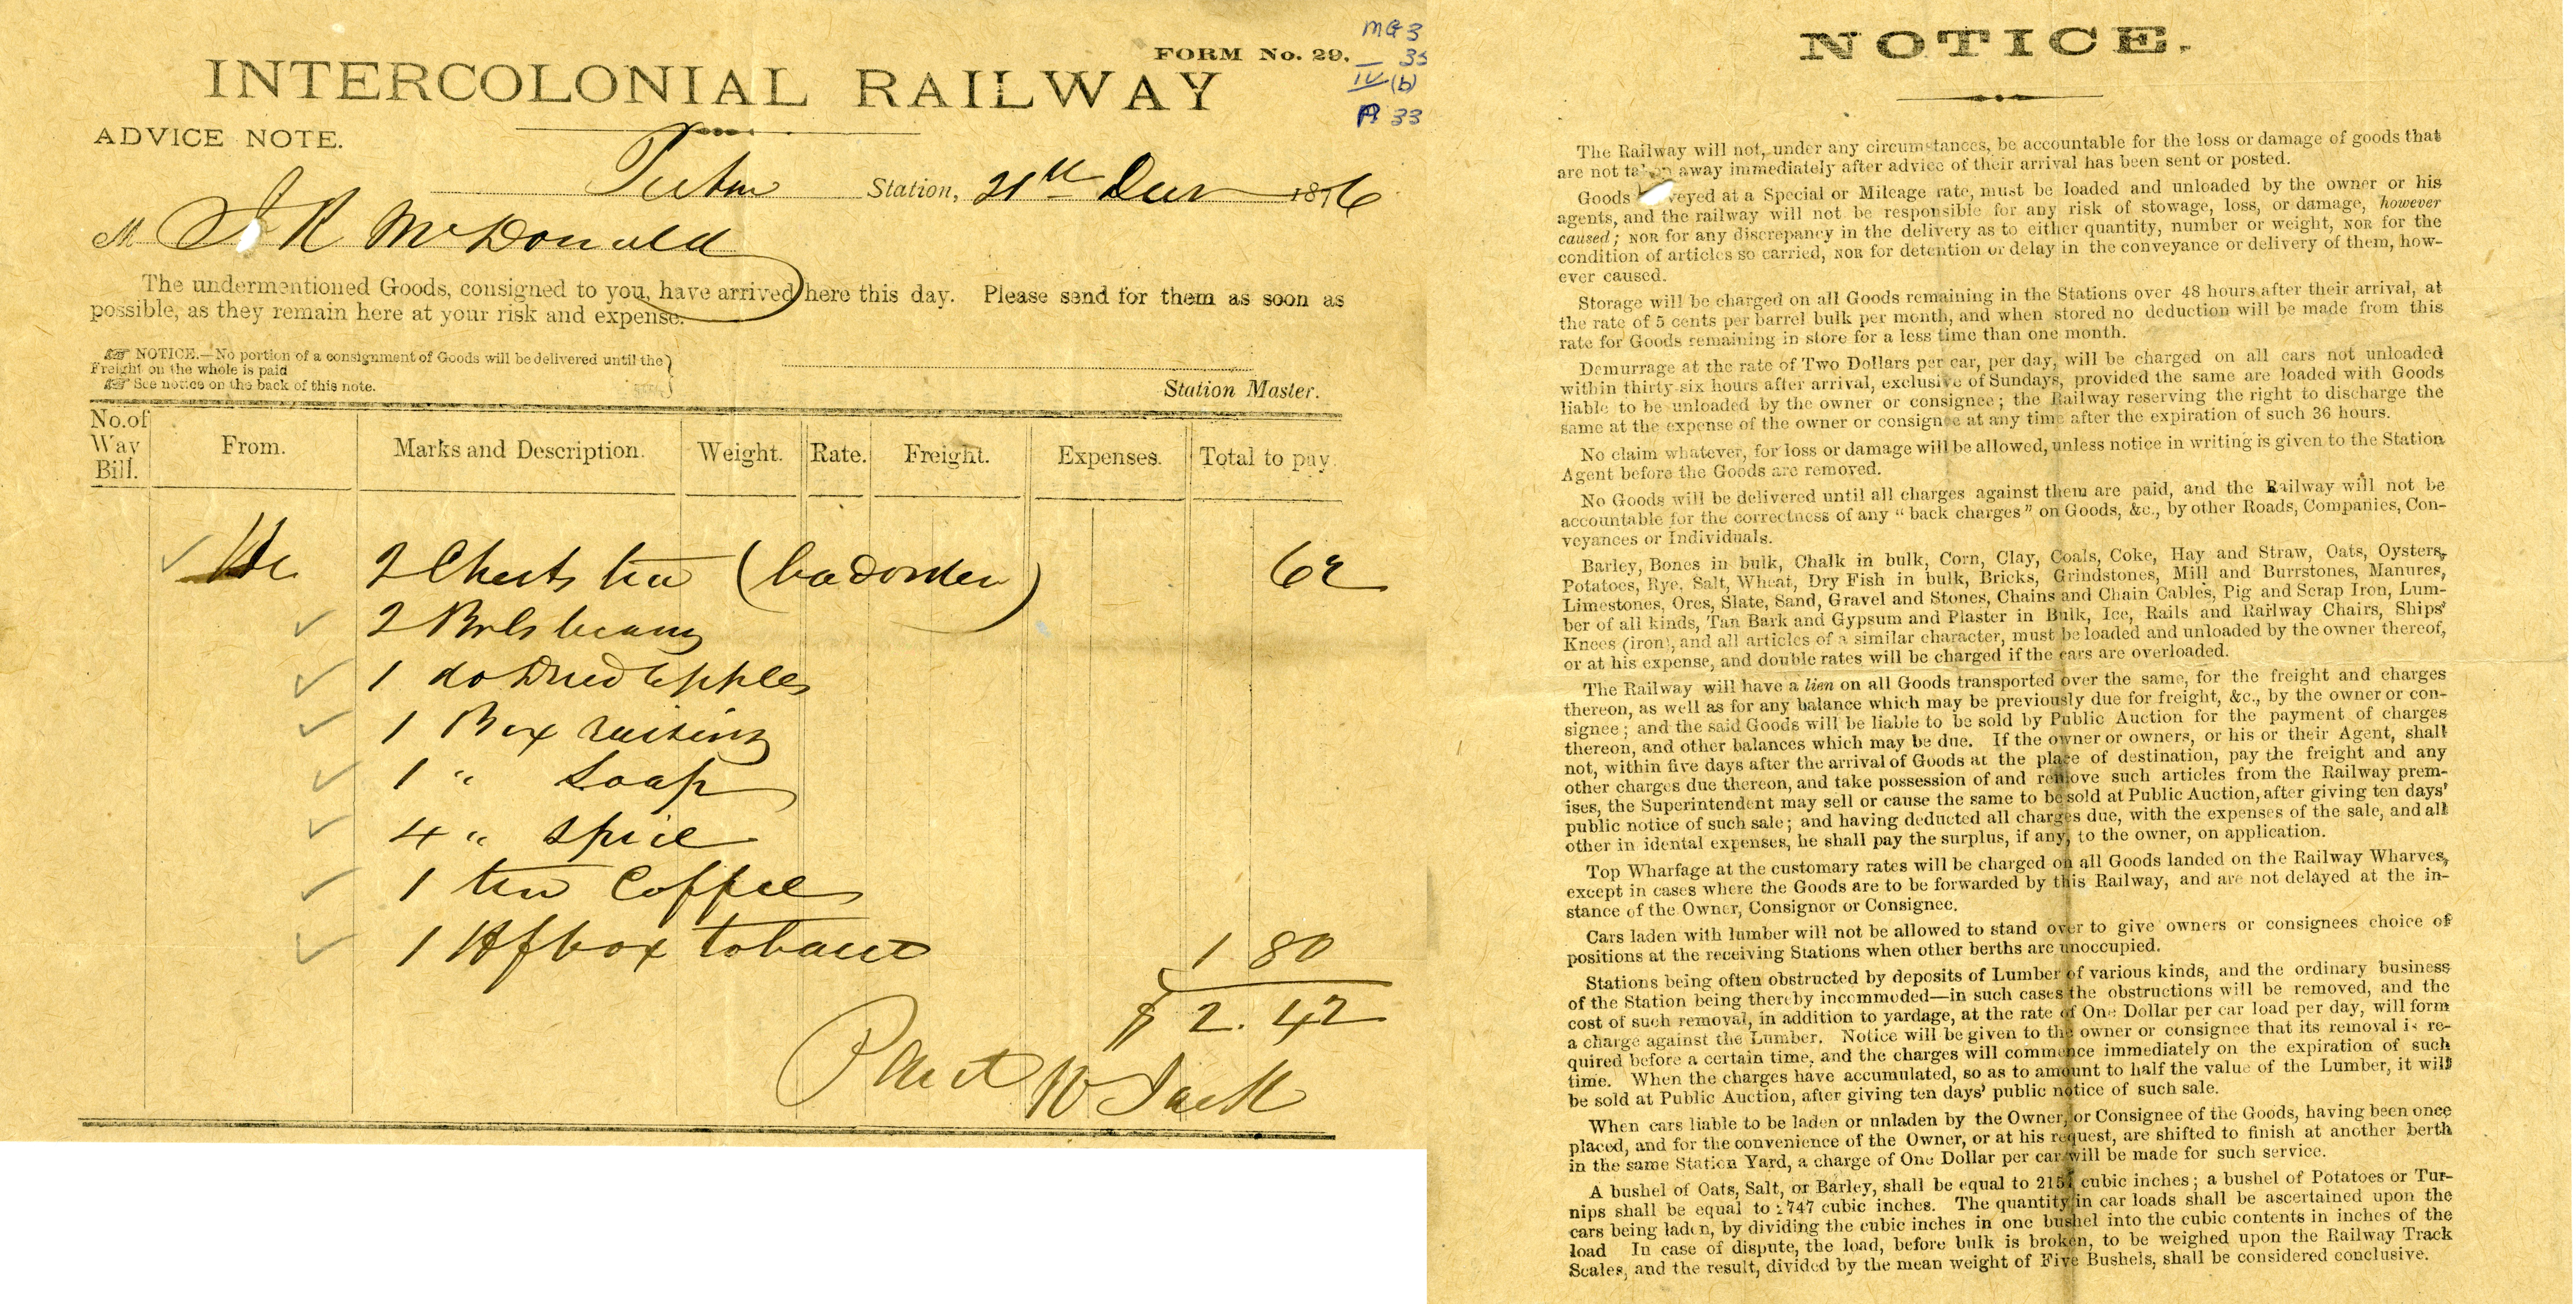 MG 3
FORM No. 29. 35
IV (b)
A 33
INTERCOLONIAL RAILWAY
ADVICE NOTE.
Station, 21st Decr 1876
M J R McDonald
The undermentioned Goods, consigned to you, have arrived here this day. Please send for them as soon as
possible, as they remain here at your risk and expense.
NOTICE.—No portion of a consignment of Goods will be delivered until the
Freight on the whole is paid
See notice on the back of this note.
Station Master.
No. of Way Bill. From. Marks and Description. Weight. Rate. Freight. Expenses. Total to pay.
2 Chests tea (bad order) 62
2 Brls beans
1 do Dried apples
1 Box raisins
1 " Soap
4 " Spice
1 tin Coffee
1 Hf box tobacco 1 80
$ 2.42
W Jack
NOTICE.
The Railway will not, under any circumstances, be accountable for the loss or damage of goods that
are not taken away immediately after advice of their arrival has been sent or posted.
Goods veyed at a Special or Mileage rate, must be loaded and unloaded by the owner or his
agents, and the railway will not be responsible for any risk of stowage, loss, or damage, however
caused; NOR for any discrepancy in the delivery as to either quantity, number or weight, NOR for the
condition of articles so carried, NOR for detention or delay in the conveyance or delivery of them, how-
ever caused.
Storage will be charged on all Goods remaining in the Stations over 48 hours after their arrival, at
the rate of 5 cents per barrel bulk per month, and when stored no deduction will be made from this
rate for Goods remaining in store for a less time than one month.
Demurrage at the rate of Two Dollars per car, per day, will be charged on all cars not unloaded
within thirty-six hours after arrival, exclusive of Sundays, provided the same are loaded with Goods
liable to be unloaded by the owner or consignee; the Railway reserving the right to discharge the
same at the expense of the owner or consignee at any time after the expiration of such 36 hours.
No claim whatever, for loss or damage will be allowed, unless notice in writing is given to the Station
Agent before the Goods are removed.
No Goods will be delivered until all charges against them are paid, and the Railway will not be
accountable for the correctness of any "back charges" on Goods, &c., by other Roads, Companies, Con-
veyances or Individuals.
Barley, Bones in bulk, Chalk in bulk, Corn, Clay, Coals, Coke, Hay and Straw, Oats, Oysters,
Potatoes, Rye, Salt, Wheat, Dry Fish in bulk, Bricks, Grindstones, Mill and Burrstones, Manures,
Limestones, Ores, Slate, Sand, Gravel and Stones, Chains and Chain Cables, Pig and Scrap Iron, Lum-
ber of all kinds, Tan Bark and Gypsum and Plaster in Bulk, Ice, Rails and Railway Chairs, Ships'
Knees (iron), and all articles of a similar character, must be loaded and unloaded by the owner thereof,
or at his expense, and double rates will be charged if the cars are overloaded.
The Railway will have a lien on all Goods transported over the same, for the freight and charges
thereon, as well as for any balance which may be previously due for freight, &c., by the owner or con-
signee; and the said Goods will be liable to be sold by Public Auction for the payment of charges
thereon, and other balances which may be due. If the owner or owners, or his or their Agent, shall
not, within five days after the arrival of Goods at the place of destination, pay the freight and any
other charges due thereon, and take possession of and remove such articles from the Railway prem-
ises, the Superintendent may sell or cause the same to be sold at Public Auction, after giving ten days'
public notice of such sale; and having deducted all charges due, with the expenses of the sale, and all
other in idental expenses, he shall pay the surplus, if any, to the owner, on application.
Top Wharfage at the customary rates will be charged on all Goods landed on the Railway Wharves,
except in cases where the Goods are to be forwarded by this Railway, and are not delayed at the in-
stance of the Owner, Consignor or Consignee.
Cars laden with lumber will not be allowed to stand over to give owners or consignees choice of
positions at the receiving Stations when other berths are unoccupied.
Stations being often obstructed by deposits of Lumber of various kinds, and the ordinary business
of the Station being thereby incommoded—in such cases the obstructions will be removed, and the
cost of such removal, in addition to yardage, at the rate of One Dollar per car load per day, will form
a charge against the Lumber. Notice will be given to the owner or consignee that its removal is re-
quired before a certain time, and the charges will commence immediately on the expiration of such
time. When the charges have accumulated, so as to amount to half the value of the Lumber, it will
be sold at Public Auction, after giving ten days' public notice of such sale.
When cars liable to be laden or unladen by the Owner, or Consignee of the Goods, having been once
placed, and for the convenience of the Owner, or at his request, are shifted to finish at another berth
in the same Station Yard, a charge of One Dollar per car will be made for such service.
A bushel of Oats, Salt, or Barley, shall be equal to cubic inches; a bushel of Potatoes or Tur-
nips shall be equal to 2747 cubic inches. The quantity in car loads shall be ascertained upon the
cars being laden, by dividing the cubic inches in one bushel into the cubic contents in inches of the
load In case of dispute, the load, before bulk is broken, to be weighed upon the Railway Track
Scales, and the result, divided by the mean weight of Five Bushels, shall be considered conclusive.